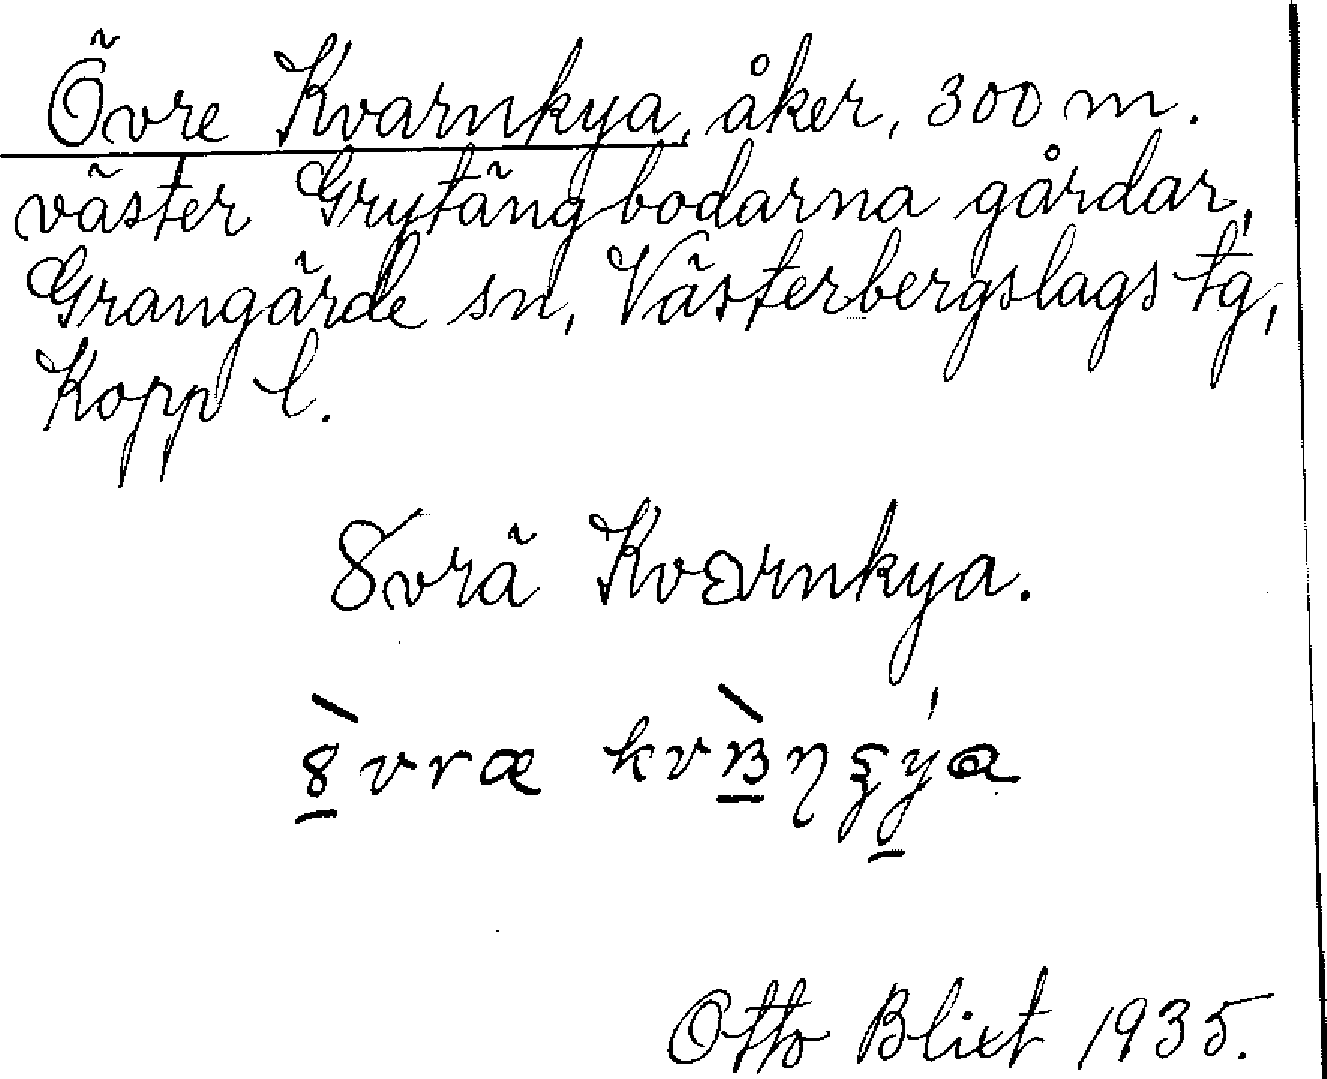 Övre Kvarnkya, åker, 300 m.
väster Grytängbodarna gårdar,
Grangärde sn, Västerbergslags tg,
Kopp l.
Ȣvrä Kvarnkya.
Otto Blixt 1935.